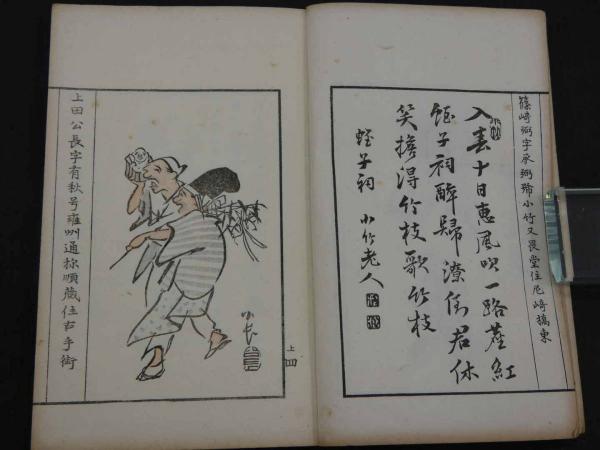 篠崎弼字承弼号小竹又畏堂住尼崎橋東
入春十日惠風吹一路塵紅
蛭子祠醉歸潦倒君休
笑擔得竹枝歌竹枝
蛭子祠 小竹老人
上四
公長
上田公長字有秋号雍州通称順蔵住古手街